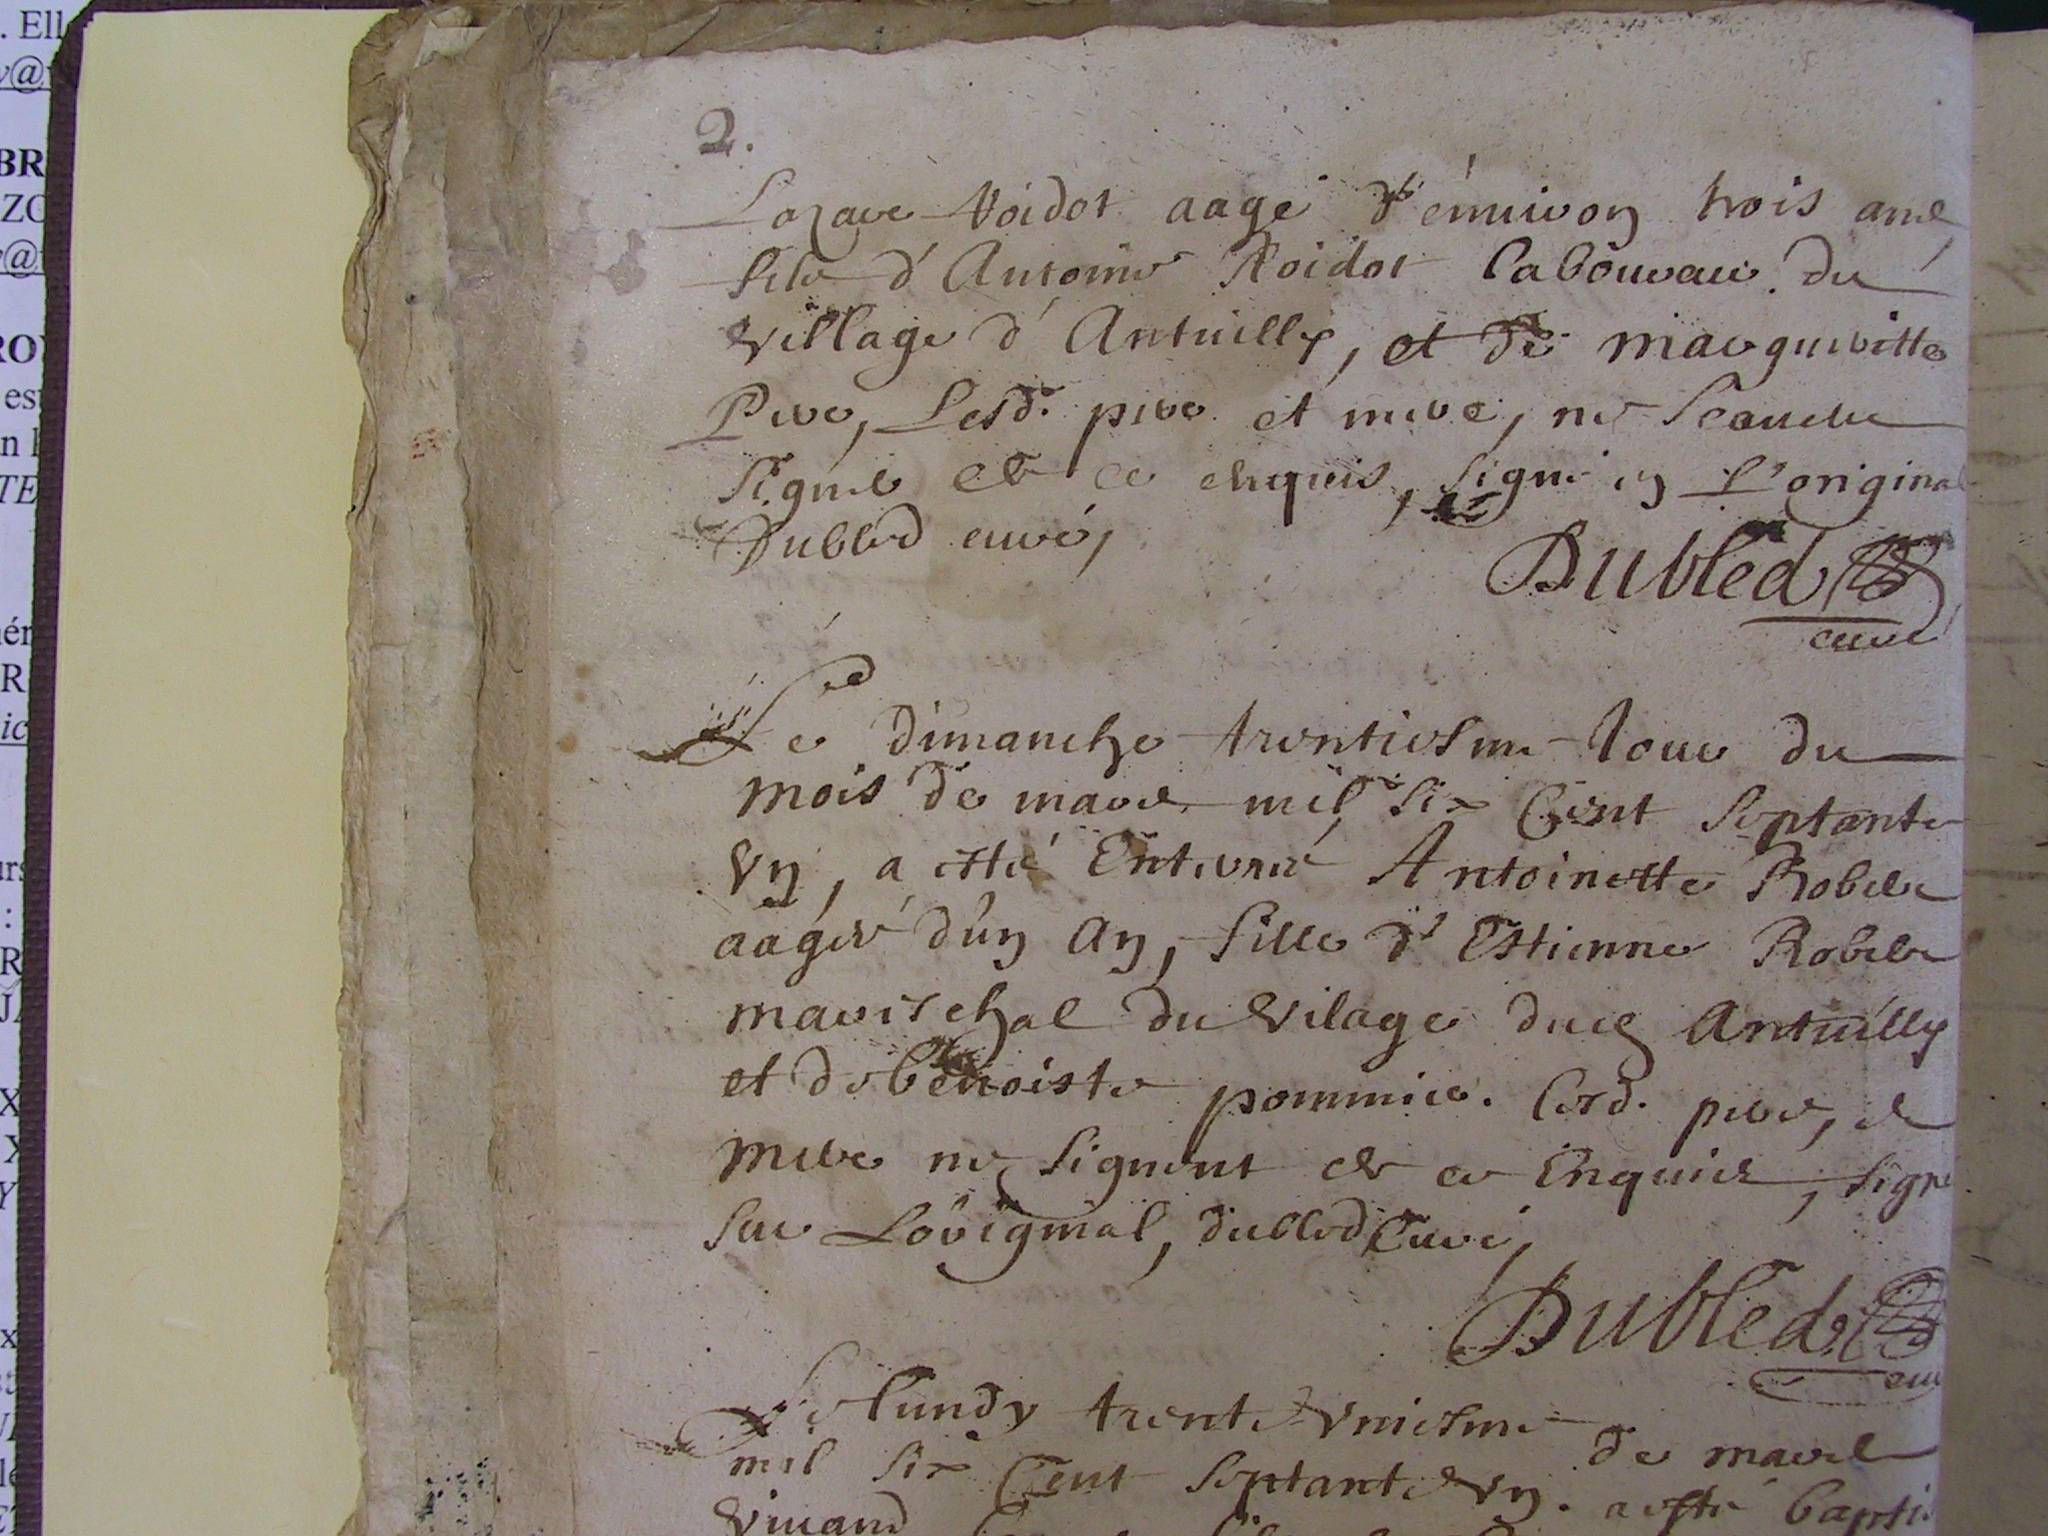 2.
Lazare Voidot aagé d'enuiron trois ans
fils d'Antoine Voidot Laboureur du
village d'Antuilly, et de margueritte
Pere, Lesd. pere et mere, ne Scauent
Signer et ce enquis, signé en L'original
Dubled curé,
Dubled
curé
Le dimanche trentiesme Iour du
mois de mars mil six Cent Septante
vn, a esté Enterrée Antoinette Robele
aagée d'un an, fille d'Estienne Robele
mareschal du vilage dud Antuilly
et de benoiste pommier. Lesd. pere, et
mere ne signent et ce Enquis, signé
sur Loriginal, dubled Curé,
Dubled
cu
Le lundy trente vniesme de mars
mil six Cent Septante vn. a esté bapti
Viuand
. Ell
BR
ZO
ROY
est
TE